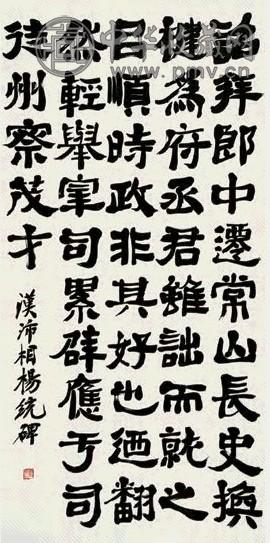 詔拜郎中遷常山長史換
犍為府丞君雖詘而就之
㠯順時政非其好也迺翻
然輕舉宰司累辟應于司
徒州察茂才
漢沛相楊統碑
中华收藏网
www.pmv.cn